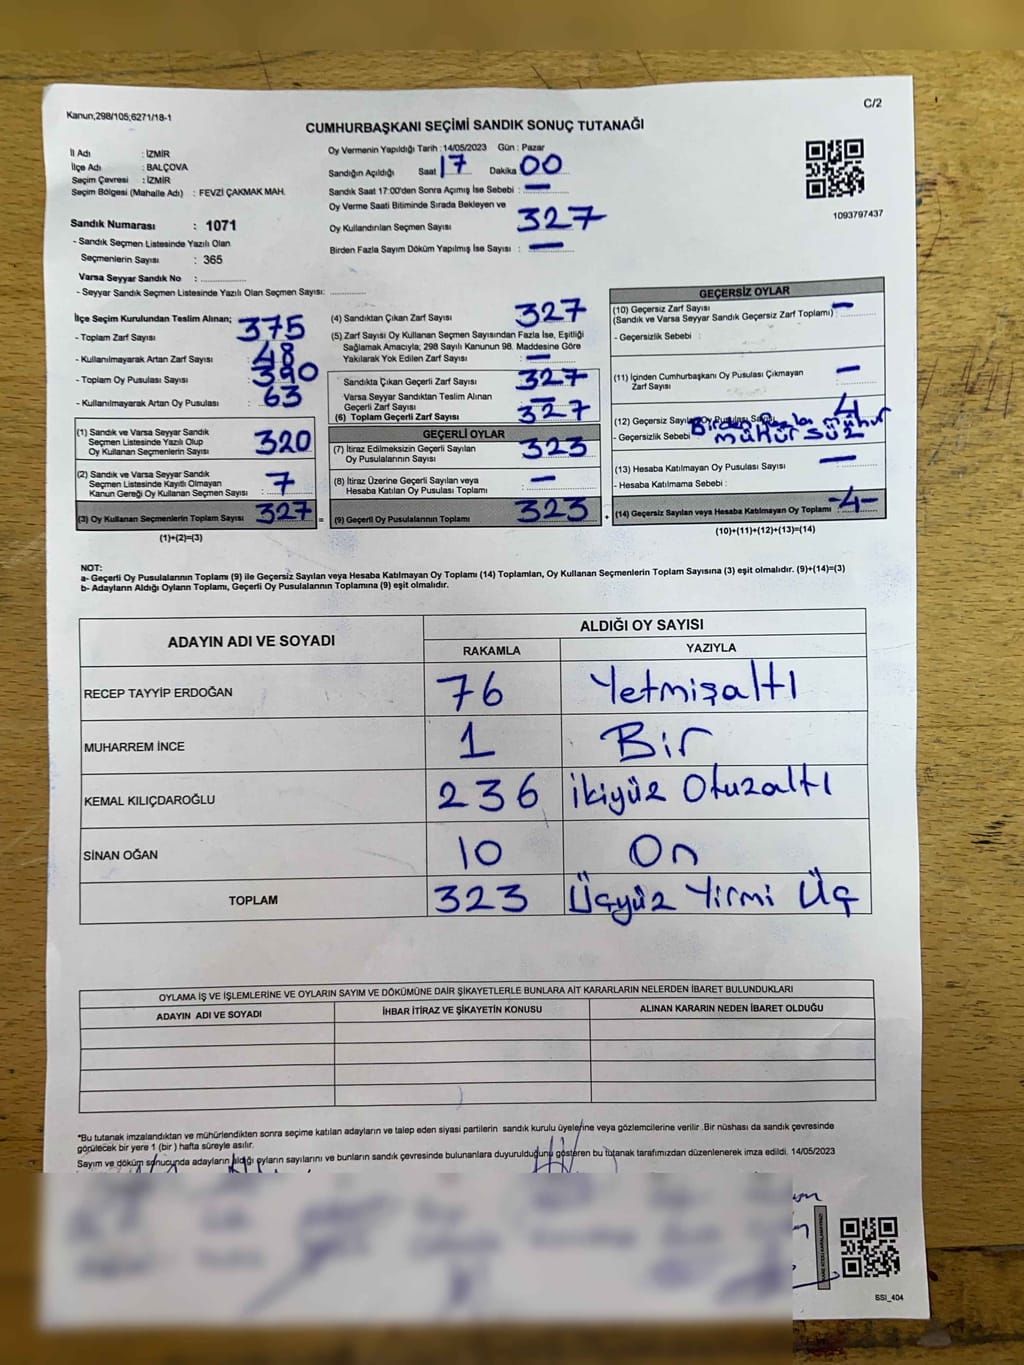 Kanun;298/105;6271/18-1
C/2
CUMHURBAŞKANI SEÇİMİ SANDIK SONUÇ TUTANAĞI
İl Adı : İZMİR
İlçe Adı : BALÇOVA
Seçim Çevresi : İZMİR
Seçim Bölgesi (Mahalle Adı) : FEVZİ ÇAKMAK MAH.
Sandık Numarası : 1071
- Sandık Seçmen Listesinde Yazılı Olan
Seçmenlerin Sayısı : 365
Varsa Seyyar Sandık No :
- Seyyar Sandık Seçmen Listesinde Yazılı Olan Seçmen Sayısı:
Oy Vermenin Yapıldığı Tarih :14/05/2023 Gün : Pazar
Sandığın Açıldığı Saat 17 Dakika 00
Sandık Saat 17:00'den Sonra Açımış İse Sebebi : —
Oy Verme Saati Bitiminde Sırada Bekleyen ve
Oy Kullandırılan Seçmen Sayısı 327
Birden Fazla Sayım Döküm Yapılmış İse Sayısı : —
1093797437
İlçe Seçim Kurulundan Teslim Alınan;
- Toplam Zarf Sayısı 375
- Kullanılmayarak Artan Zarf Sayısı 48
- Toplam Oy Pusulası Sayısı 390
- Kullanılmayarak Artan Oy Pusulası : 63
(1) Sandık ve Varsa Seyyar Sandık
Seçmen Listesinde Yazılı Olup
Oy Kullanan Seçmenlerin Sayısı 320
(2) Sandık ve Varsa Seyyar Sandık
Seçmen Listesinde Kayıtlı Olmayan
Kanun Gereği Oy Kullanan Seçmen Sayısı : 7
(3) Oy Kullanan Seçmenlerin Toplam Sayısı : 327
(1)+(2)=(3)
(4) Sandıktan Çıkan Zarf Sayısı : 327
(5) Zarf Sayısı Oy Kullanan Seçmen Sayısından Fazla İse, Eşitliği
Sağlamak Amacıyla; 298 Sayılı Kanunun 98. Maddesine Göre
Yakılarak Yok Edilen Zarf Sayısı : —
Sandıkta Çıkan Geçerli Zarf Sayısı 327
Varsa Seyyar Sandıktan Teslim Alınan
Geçerli Zarf Sayısı : —
(6) Toplam Geçerli Zarf Sayısı : 327
GEÇERLİ OYLAR
(7) İtiraz Edilmeksizin Geçerli Sayılan
Oy Pusulalarının Sayısı : 323
(8) İtiraz Üzerine Geçerli Sayılan veya
Hesaba Katılan Oy Pusulası Toplamı : —
= (9) Geçerli Oy Pusulalarının Toplamı : 323
GEÇERSİZ OYLAR
(10) Geçersiz Zarf Sayısı
(Sandık ve Varsa Seyyar Sandık Geçersiz Zarf Toplamı) : —
- Geçersizlik Sebebi :
(11) İçinden Cumhurbaşkanı Oy Pusulası Çıkmayan
Zarf Sayısı : —
(12) Geçersiz Sayılan Oy Pusulası Sayısı 4
- Geçersizlik Sebebi Birden Fazla Mühür
mühürsüz
(13) Hesaba Katılmayan Oy Pusulası Sayısı : —
- Hesaba Katılmama Sebebi :
+ (14) Geçersiz Sayılan veya Hesaba Katılmayan Oy Toplamı : -4-
(10)+(11)+(12)+(13)=(14)
NOT:
a- Geçerli Oy Pusulalarının Toplamı (9) ile Geçersiz Sayılan veya Hesaba Katılmayan Oy Toplamı (14) Toplamları, Oy Kullanan Seçmenlerin Toplam Sayısına (3) eşit olmalıdır. (9)+(14)=(3)
b- Adayların Aldığı Oyların Toplamı, Geçerli Oy Pusulalarının Toplamına (9) eşit olmalıdır.
ADAYIN ADI VE SOYADI
ALDIĞI OY SAYISI
RAKAMLA YAZIYLA
RECEP TAYYİP ERDOĞAN 76 Yetmişaltı
MUHARREM İNCE 1 Bir
KEMAL KILIÇDAROĞLU 236 İkiyüz Otuzaltı
SİNAN OĞAN 10 On
TOPLAM 323 Üçyüz Yirmi Üç
OYLAMA İŞ VE İŞLEMLERİNE VE OYLARIN SAYIM VE DÖKÜMÜNE DAİR ŞİKAYETLERLE BUNLARA AİT KARARLARIN NELERDEN İBARET BULUNDUKLARI
ADAYIN ADI VE SOYADI İHBAR İTİRAZ VE ŞİKAYETİN KONUSU ALINAN KARARIN NEDEN İBARET OLDUĞU
*Bu tutanak imzalandıktan ve mühürlendikten sonra seçime katılan adayların ve talep eden siyasi partilerin sandık kurulu üyelerine veya gözlemcilerine verilir .Bir nüshası da sandık çevresinde
görülecek bir yere 1 (bir ) hafta süreyle asılır.
Sayım ve döküm sonucunda adayların aldığı oyların sayılarını ve bunların sandık çevresinde bulunanlara duyurulduğunu gösteren bu tutanak tarafımızdan düzenlenerek imza edildi. 14/05/2023
SSI_404